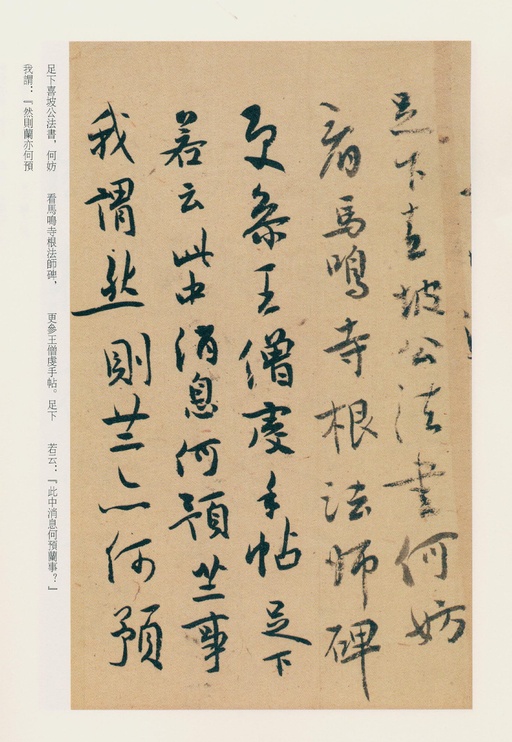 足下喜坡公法書何妨
看馬鳴寺根法師碑
更參王僧虔手帖足下
若云此中消息何預蘭事
我謂然則蘭亦何預
足下喜坡公法書，何妨　看馬鳴寺根法師碑，　更參王僧虔手帖。足下　若云：『此中消息何預蘭事？』
我謂：『然則蘭亦何預